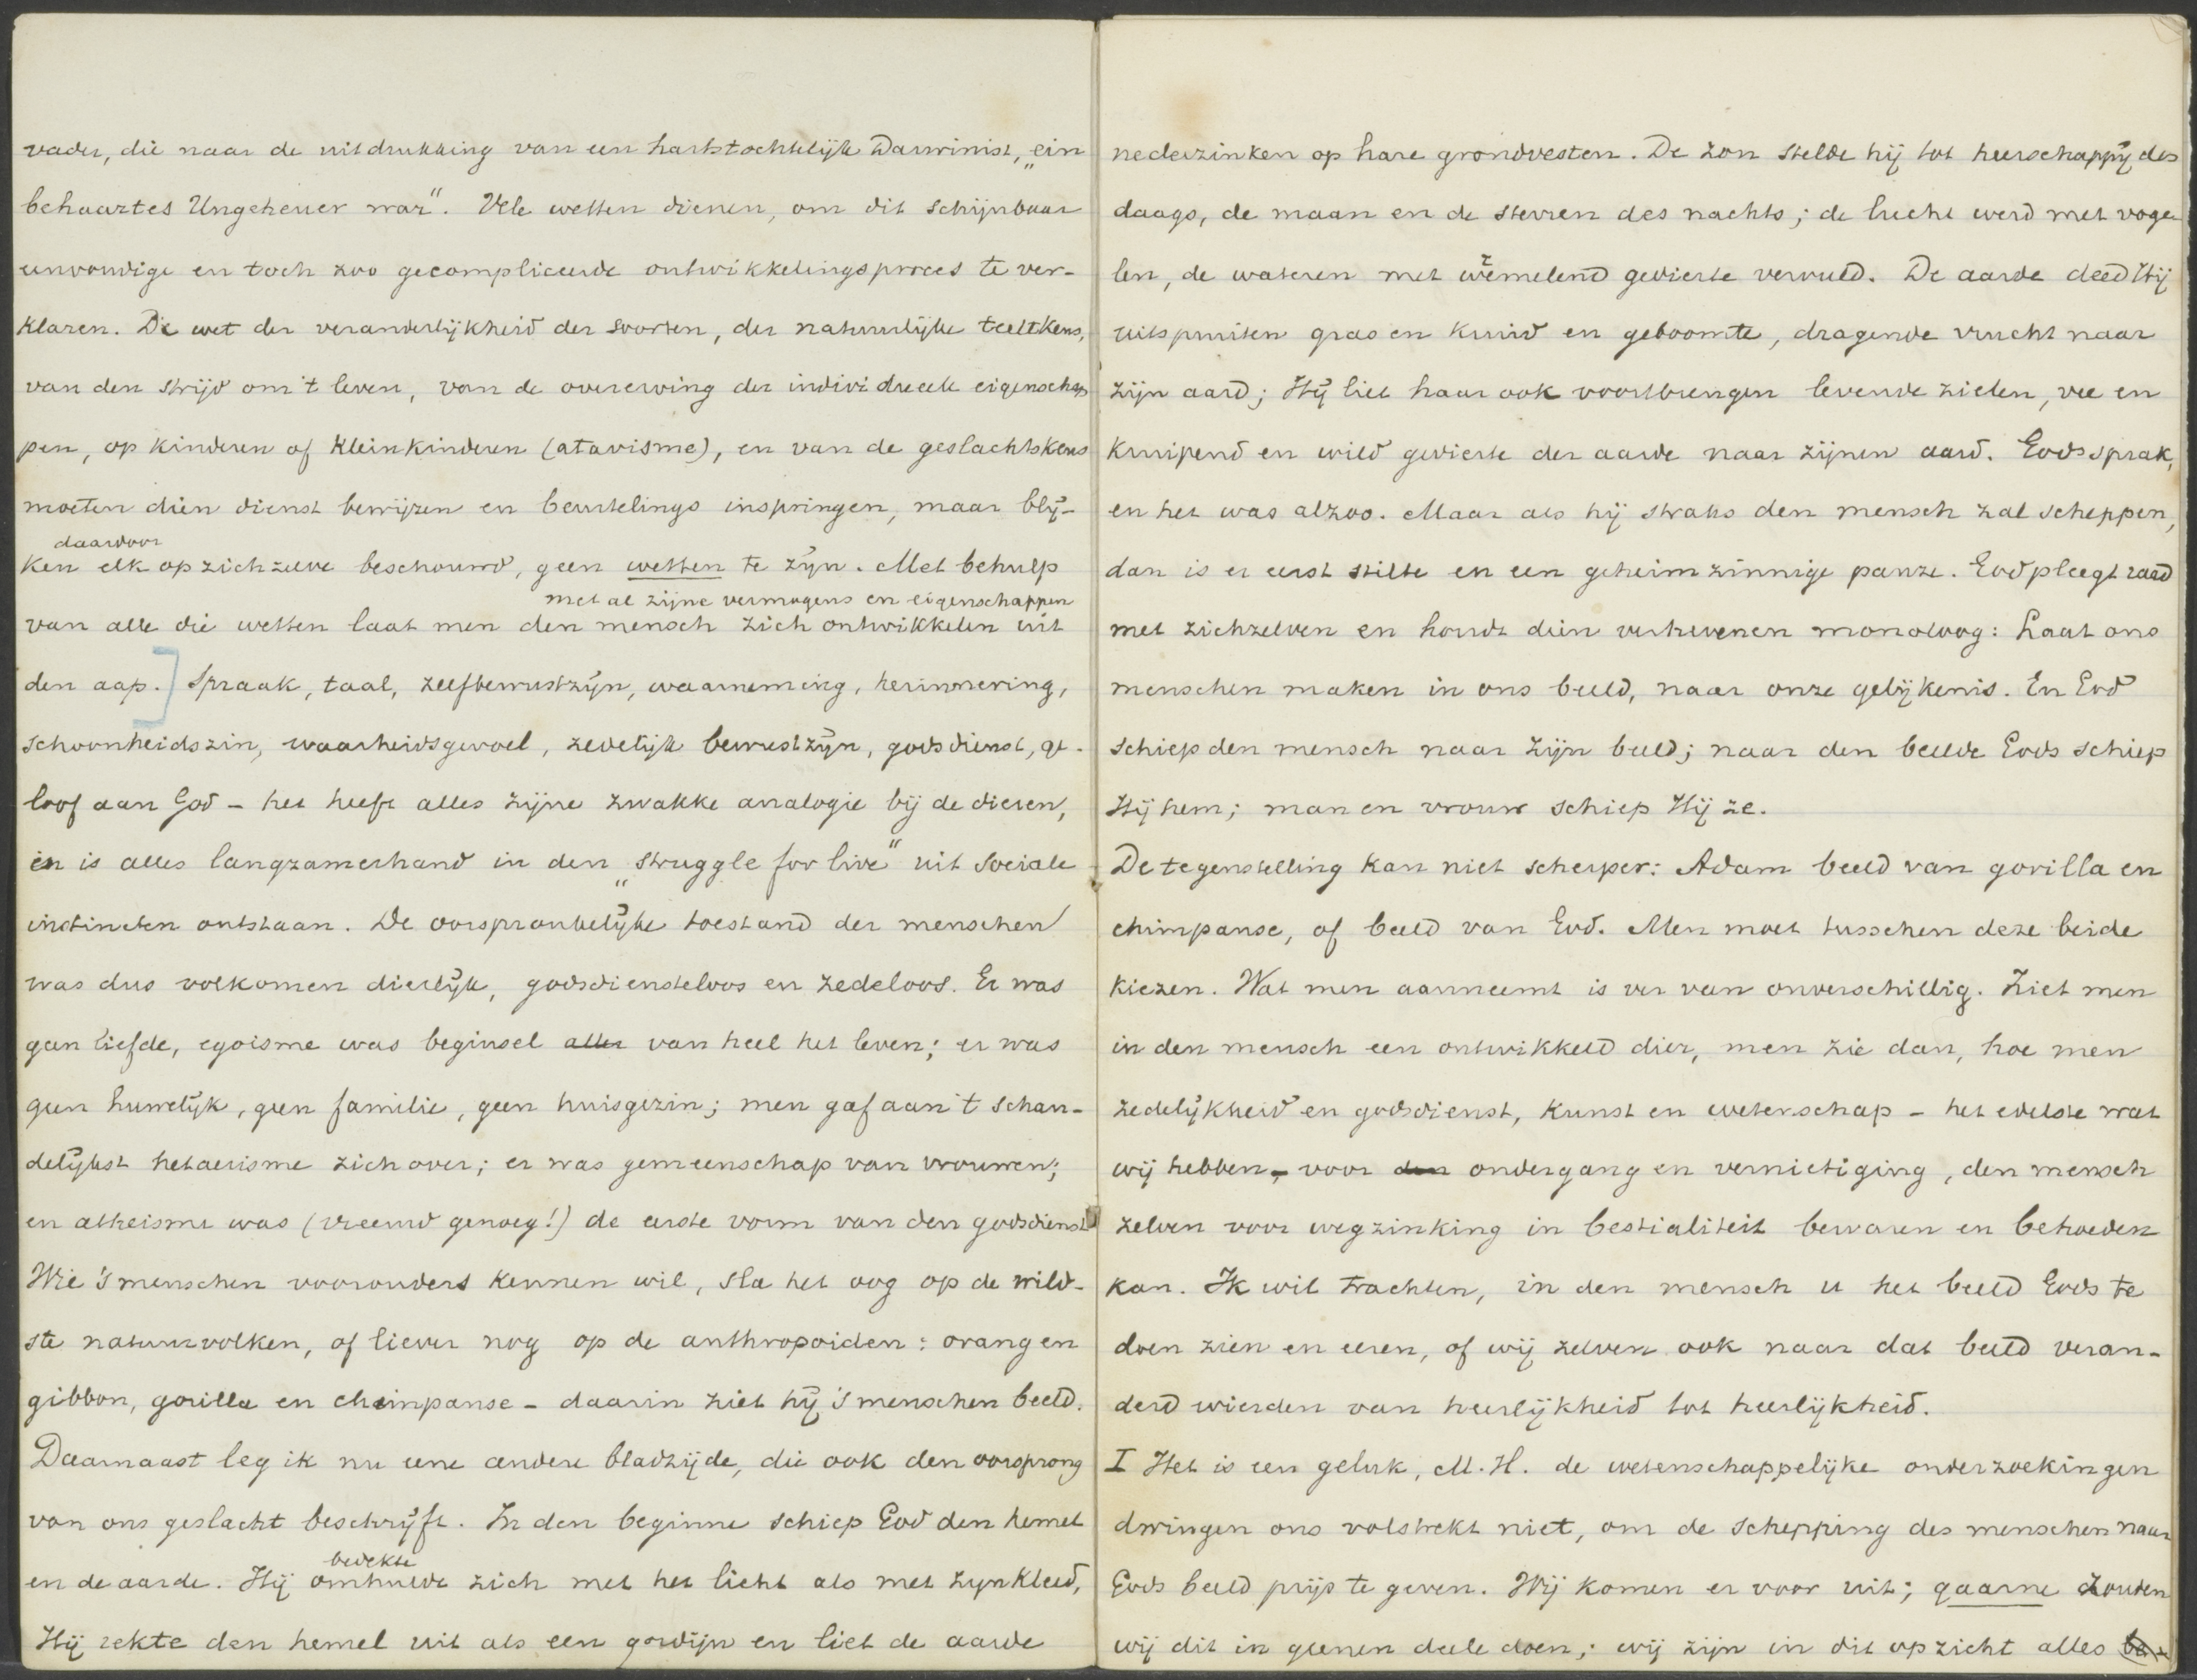 vader, die naar de uitdrukking van een hartstochtelijk Darwinist, „ein
behaartes Ungeheuer war". Vele wetten dienen, om dit schijnbaar
eenvoudige en toch zoo gecompliceerde ontwikkelingsproces te ver-
klaren. De wet der veranderlijkheid der soorten, der natuurlijke teeltkeus,
van den strijd om 't leven, van de overerving der individueele eigenschap
pen, op kinderen of kleinkinderen (atavisme), en van de geslachtskeus
moeten dien dienst bewijzen en beurtelings inspringen, maar blij-
daarvoor
ken elk op zich zelve beschouwd, geen wetten te zijn. Met behulp
met al zijne vermogens en eigenschappen
van alle die wetten laat men den mensch zich ontwikkelen uit
den aap.] Spraak, taal, zelfbewustzijn, waarneming, herinnering,
schoonheidszin, waarheidsgevoel, zedelijk bewustzijn, godsdienst, ge-
loof aan God - het heeft alles zijne zwakke analogie bij de dieren,
en is alles langzamerhand in den „struggle for live" uit sociale
instincten ontstaan. De oorspronkelijke toestand der menschen
was dus volkomen dierlijk, godsdiensteloos en zedeloos. Er was
geen liefde, egoisme was beginsel aller van heel het leven; er was
geen huwelijk, geen familie, geen huisgezin; men gaf aan 't schan-
delijkst hetaerisme zich over; er was gemeenschap van vrouwen;
en atheisme was (vreemd genoeg!) de eerste vorm van den godsdienst
Wie 's menschen voorouders kennen wil, sla het oog op de wild-
ste natuurvolken, of liever nog op de anthropoiden: orang en
gibbon, gorilla en chimpanse - daarin ziet hij 's menschen beeld.
Daarnaast leg ik nu eene andere bladzijde, die ook den oorsprong
van ons geslacht beschrijft. In den beginne schiep God den hemel
bedekte
en de aarde. Hij omhulde zich met het licht als met zijn kleed,
Hij rekte den hemel uit als een gordijn en liet de aarde
nederzinken op hare grondvesten. De zon stelde hij tot heerschappij des
daags, de maan en de sterren des nachts; de lucht werd met voge-
len, de wateren met wemelend gedierte vervuld. De aarde deed Hij
uitspruiten gras en kruid en geboomte, dragende vrucht naar
zijn aard; Hij liet haar ook voortbrengen levende zielen, vee en
kruipend en wild gedierte der aarde naar zijnen aard. God sprak,
en het was alzoo. Maar als hij straks den mensch zal scheppen,
dan is er eerst stilte en een geheimzinnige pauze. God pleegt raad
met zichzelven en houdt dien verhevenen monoloog: Laat ons
menschen maken in ons beeld, naar onze gelijkenis. En God
schiep den mensch naar zijn beeld; naar den beelde Gods schiep
Hij hem; man en vrouw schiep Hij ze.
De tegenstelling kan niet scherper: Adam beeld van gorilla en
chimpanse, of beeld van God. Men moet tusschen deze beide
kiezen. Wat men aanneemt is ver van onverschillig. Ziet men
in den mensch een ontwikkeld dier, men zie dan, hoe men
zedelijkheid en godsdienst, kunst en wetenschap - het edelste wat
wij hebben, - voor den ondergang en vernietiging, den mensch
zelven voor wegzinking in bestialiteit bewaren en behoeden
kan. Ik wil trachten, in den mensch u het beeld Gods te
doen zien en eeren, of wij zelven ook naar dat beeld veran-
derd wierden van heerlijkheid tot heerlijkheid.
I Het is een geluk, M.H. de wetenschappelijke onderzoekingen
dwingen ons volstrekt niet, om de schepping des menschen naar
Gods beeld prijs te geven. Wij komen er voor uit; gaarne zouden
wij dit in geenen deele doen; wij zijn in dit opzicht alles